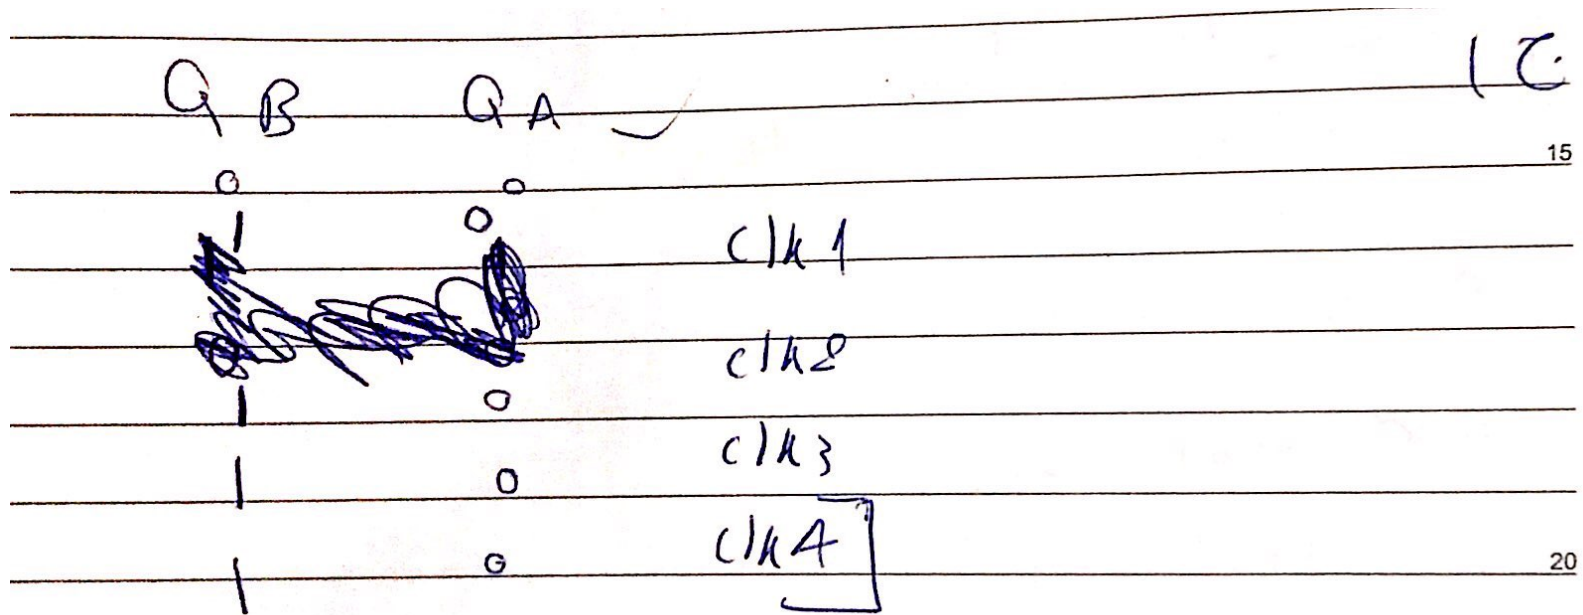 QB QA ✓
15
0 0
1 0 clk1
clk2
1 0
clk3
1 0
clk4
1 0
20